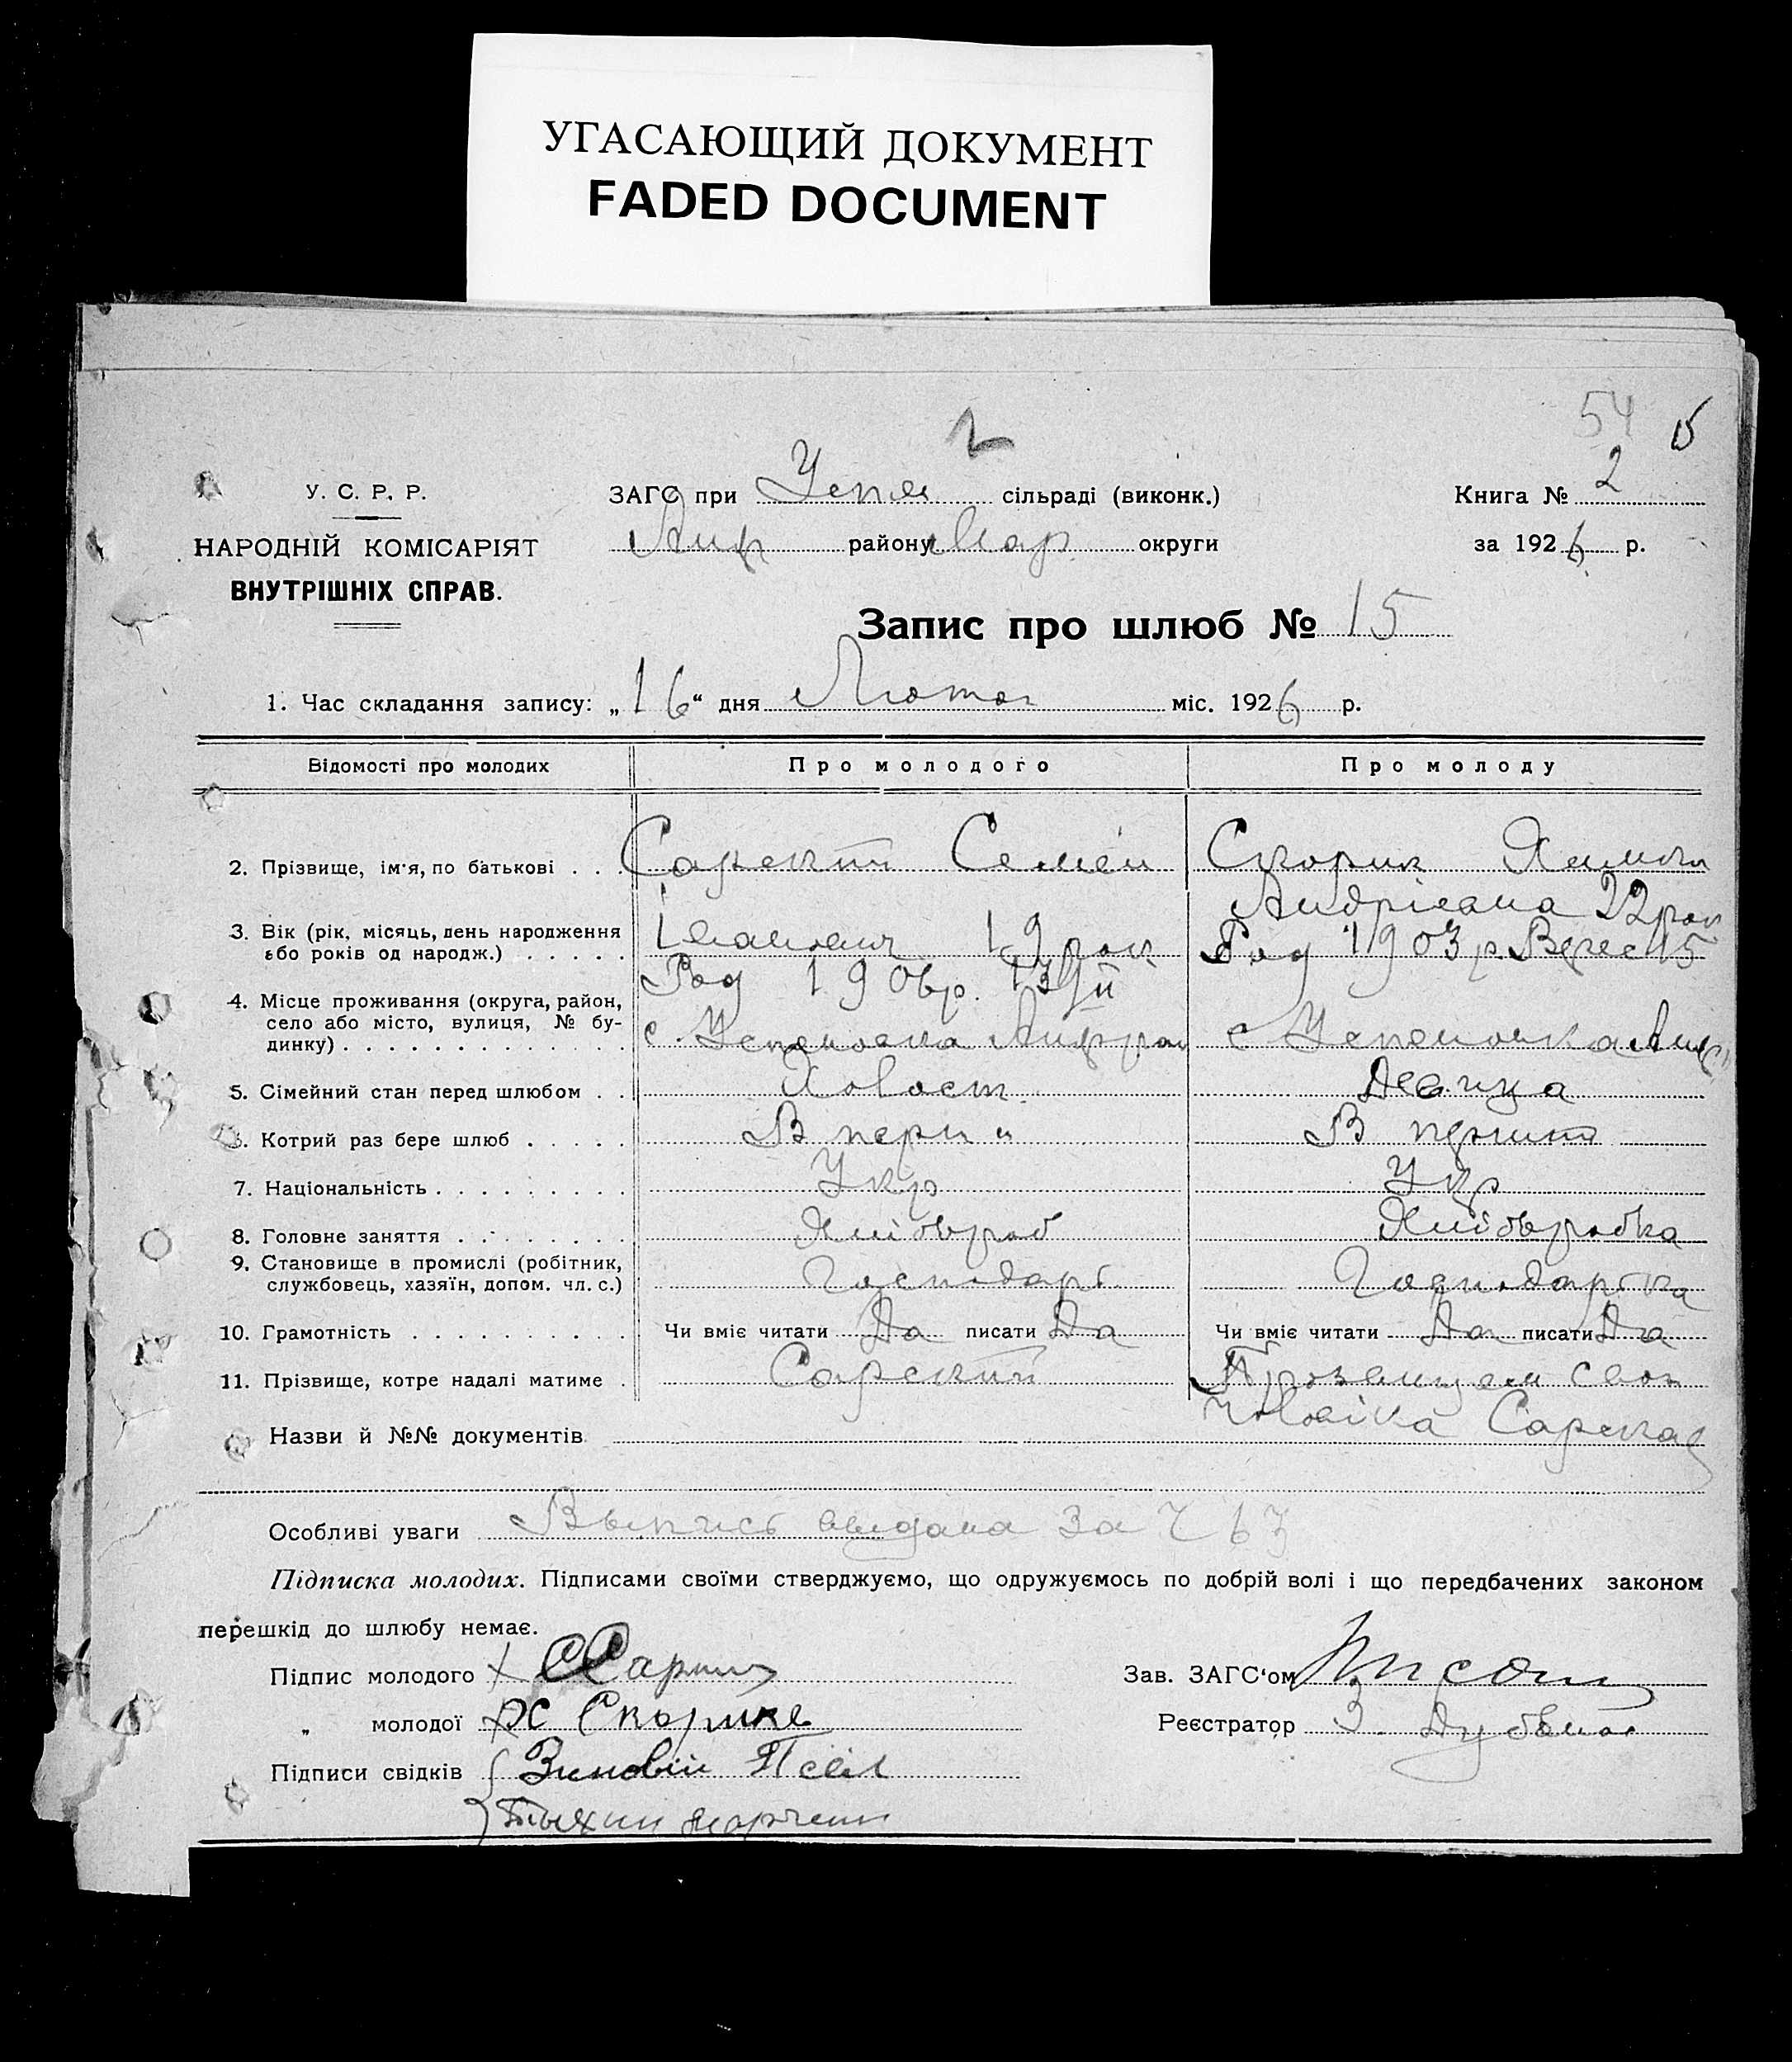 УГАСАЮЩИЙ ДОКУМЕНТ
FADED DOCUMENT
54 15
2
У. С. Р. Р.
НАРОДНІЙ КОМІСАРІЯТ
ВНУТРІШНІХ СПРАВ.
ЗАГС при Успен сільраді (виконк.)
району Мар округи
Книга № 2
за 1926 р.
Запис про шлюб № 15
1. Час складання запису: „16“ дня Лютог міс. 1926 р.
Відомості про молодих Про молодого Про молоду
2. Прізвище, ім'я, по батькові . . . Сарский Семен Скорик
Андріевна 22 рок
3. Вік (рік, місяць, день народження
або років од народж.) . . . . . Іванович 19 рок Род 1903 р. Верес 15
Род 1906 р.
4. Місце проживання (округа, район,
село або місто, вулиця, № бу-
динку) . . . . . . . . . . . . . с. Успеновка с Успеновка
5. Сімейний стан перед шлюбом . . Холост. Девица
6. Котрий раз бере шлюб . . . . . В перши В перший
7. Національність . . . . . . . . . Укр Укр
8. Головне заняття . . . . . . . . Хлібороб Хліборобка
9. Становище в промислі (робітник,
службовець, хазяїн, допом. чл. с.) Господарь Господарька
10. Грамотність . . . . . . . . . . Чи вміє читати Да писати Да Чи вміє читати Да писати Да
11. Прізвище, котре надалі матиме . Сарский Прозвищем свог
чоловіка Сарская
Назви й №№ документів
Особливі уваги Выпись выдана за
Підписка молодих. Підписами своїми стверджуємо, що одружуємось по добрій волі і що передбачених законом
перешкід до шлюбу немає.
Підпис молодого
Зав. ЗАГС'ом
„ молодої Х Скорике
Реєстратор
Підписи свідків Зиновій